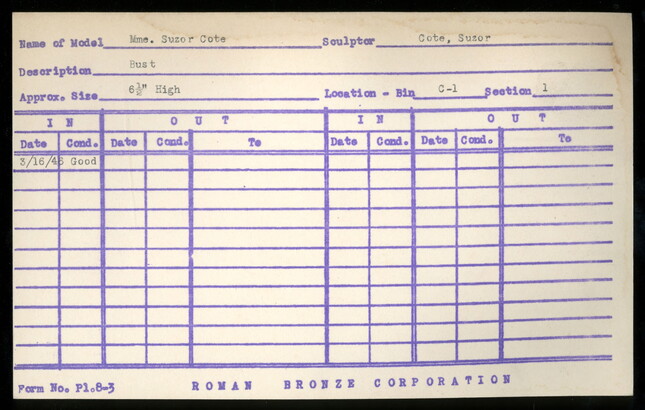 Name of Model Mme. Suzor Cote Sculptor Cote, Suzor
Description Bust
Approx. Size 6½" High Location - Bin C-1 Section 1
I N O U T I N O U T
Date Cond. Date Cond. To Date Cond. Date Cond. To
3/16/48 Good
Form No. Pl.8-3 ROMAN BRONZE CORPORATION